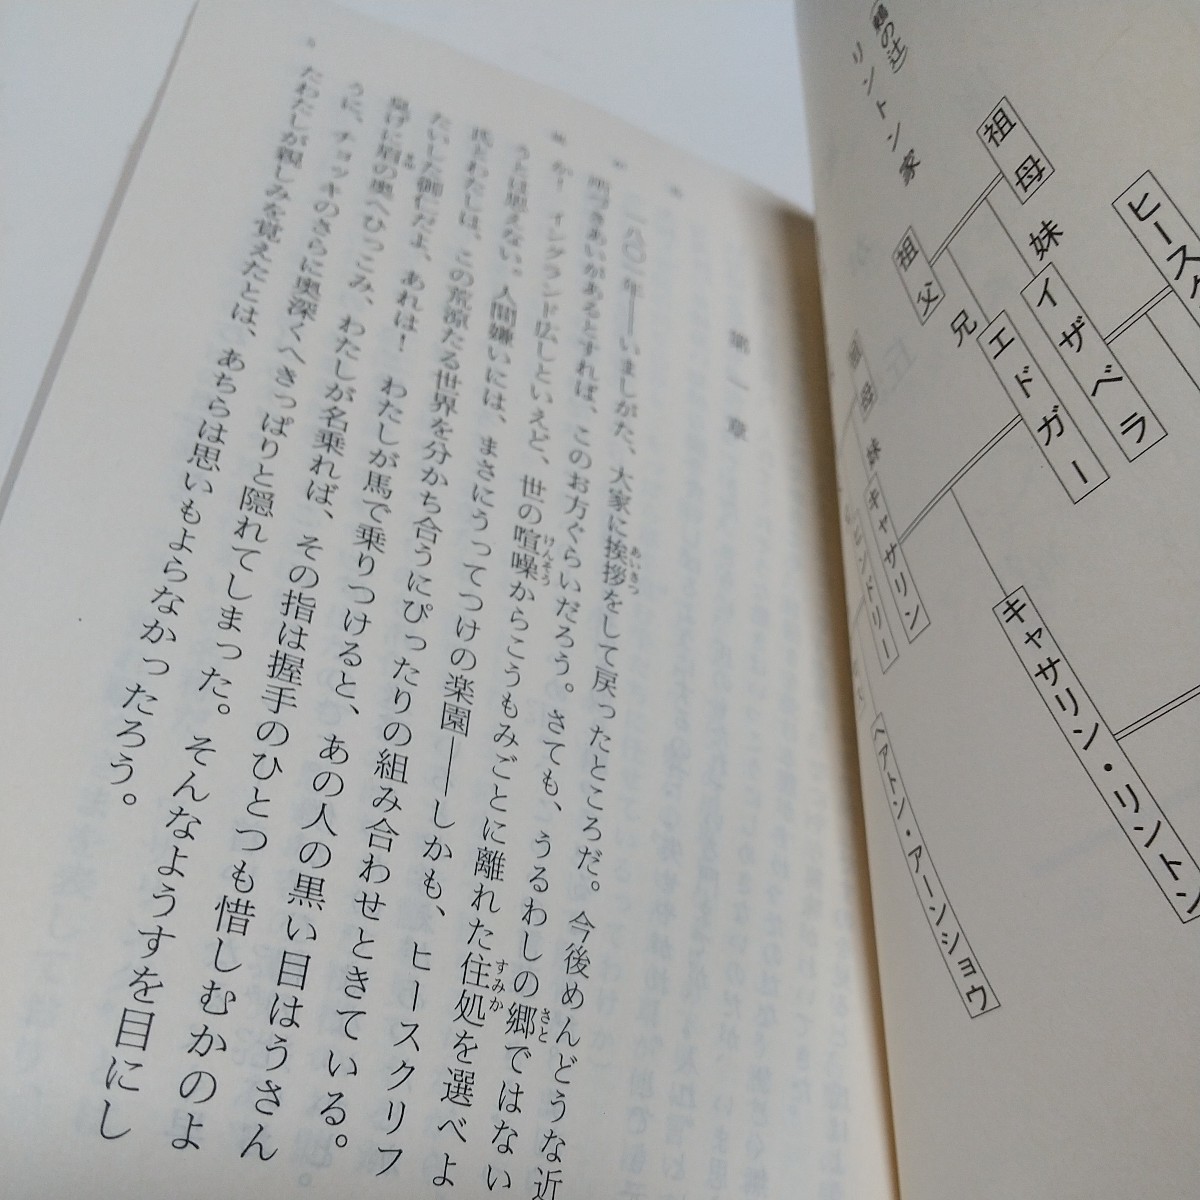 第一章
一八〇一年――いましがた、大家に挨拶をして戻ったところだ。今後めんどうな近
所づきあいがあるとすれば、このお方ぐらいだろう。さても、うるわしの郷ではない
か！ イングランド広しといえど、世の喧噪からこうもみごとに離れた住処を選べよ
うとは思えない。人間嫌いには、まさにうってつけの楽園――しかも、ヒースクリフ
氏とわたしは、この荒涼たる世界を分かち合うにぴったりの組み合わせときている。
たいした御仁だよ、あれは！ わたしが馬で乗りつけると、あの人の黒い目はうさん
臭げに眉の奥へひっこみ、わたしが名乗れば、その指は握手のひとつも惜しむかのよ
うに、チョッキのさらに奥深くへきっぱりと隠れてしまった。そんなようすを目にし
たわたしが親しみを覚えたとは、あちらは思いもよらなかったろう。
あいさつ
けんそう
さと
すみか
まゆ
リントン家
祖母
祖父
妹
イザベラ
兄
エドガー
ヒースク
キャサリン・リントン
祖母
妹
キャサリン
ヒンドリー
ヘアトン・アーンショウ